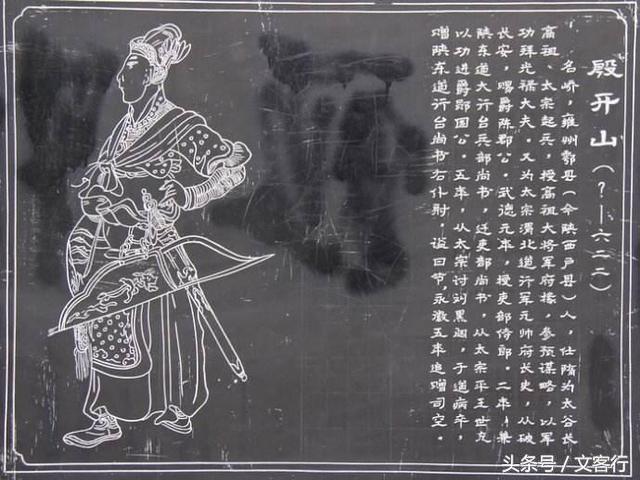 殷开山(?—六二二)
名峤,雍州鄠县(今陕西户县)人,仕隋为太谷长
高祖、太宗起兵,授高祖大将军府掾,参预谋略,以军
功拜光禄大夫。又为太宗渭北道行军元帅府长史,从破
长安,赐爵陈郡公。武德元年,授吏部侍郎。二年,兼
陕东道大行台兵部尚书,迁吏部尚书,从太宗平王世充
以功进爵郧国公。五年,从太宗讨刘黑闼,于道病卒,
赠陕东道行台尚书右仆射,谥曰节,永徽五年追赠司空。
头条号/文客行